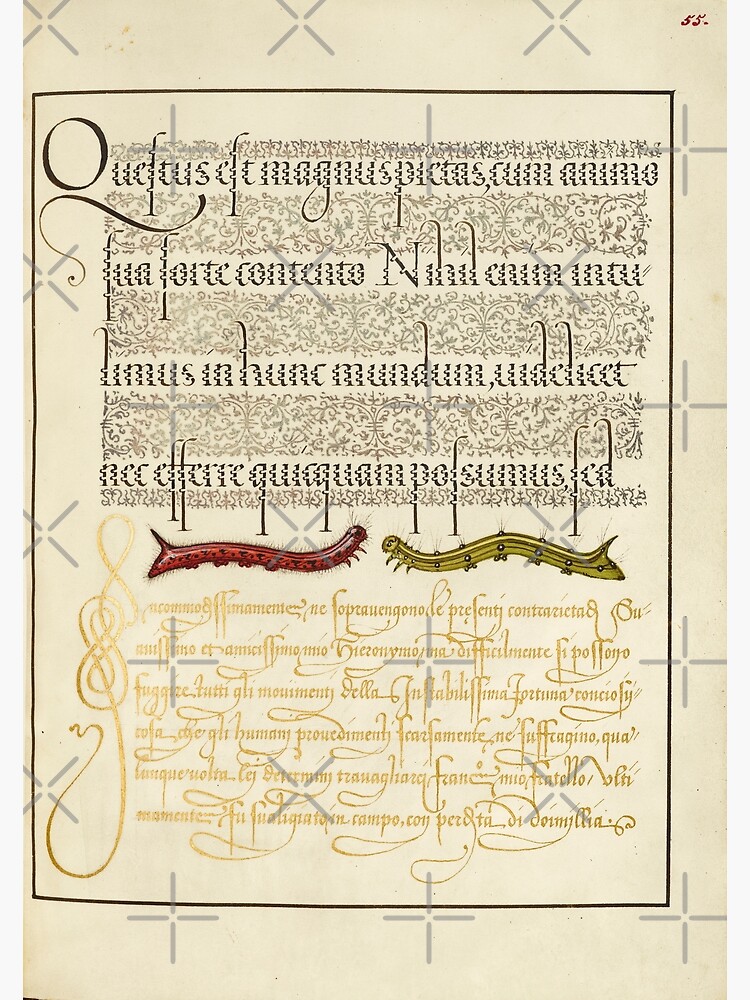 55.
Questus est magnus pietas, cum animo
sua sorte contento Nihil enim intu-
limus in hunc mundum, videlicet
nec efferre quicquam possumus, sed
Incommodissimamente ne sopravengono le presenti contrarietadi Su-
avissimo et amicissimo mio Hieronymo, ma difficilmente si possono
fuggire tutti gli movimenti della Instabilissima fortuna concio sij
cosa che gli humani provedimenti scarsamente ne suffragino, qua-
lunque volta lei determini travagliarci Franco mio fratello Ulti
mamente fu svaligiato in campo, con perdita di doimillia